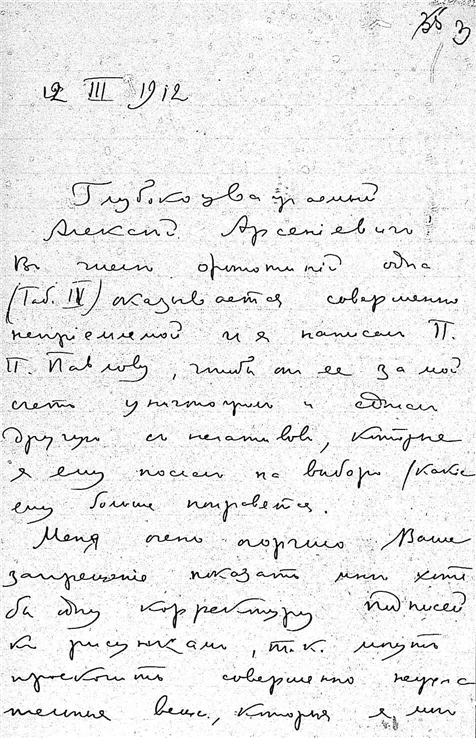 3
12 III 1912
Глубокоуважаемый
Алексей Арсеніевичъ
Въ числѣ фототипій одна
(Таб. IV) оказывается совершенно
непріемлемой и я написалъ П.
П. Павлову, чтобы он ее за мой
счетъ уничтожилъ и сдѣлалъ
другую съ негативовъ, которые
я ему послалъ на выборъ (какіе
ему больше понравятся.
Меня очень огорчило Ваше
запрещеніе показать мнѣ хотя
бы одну корректуру подписей
къ рисункамъ, т.к. могутъ
проскочить совершенно нежела
тельныя вещи, которыя я мнѣ